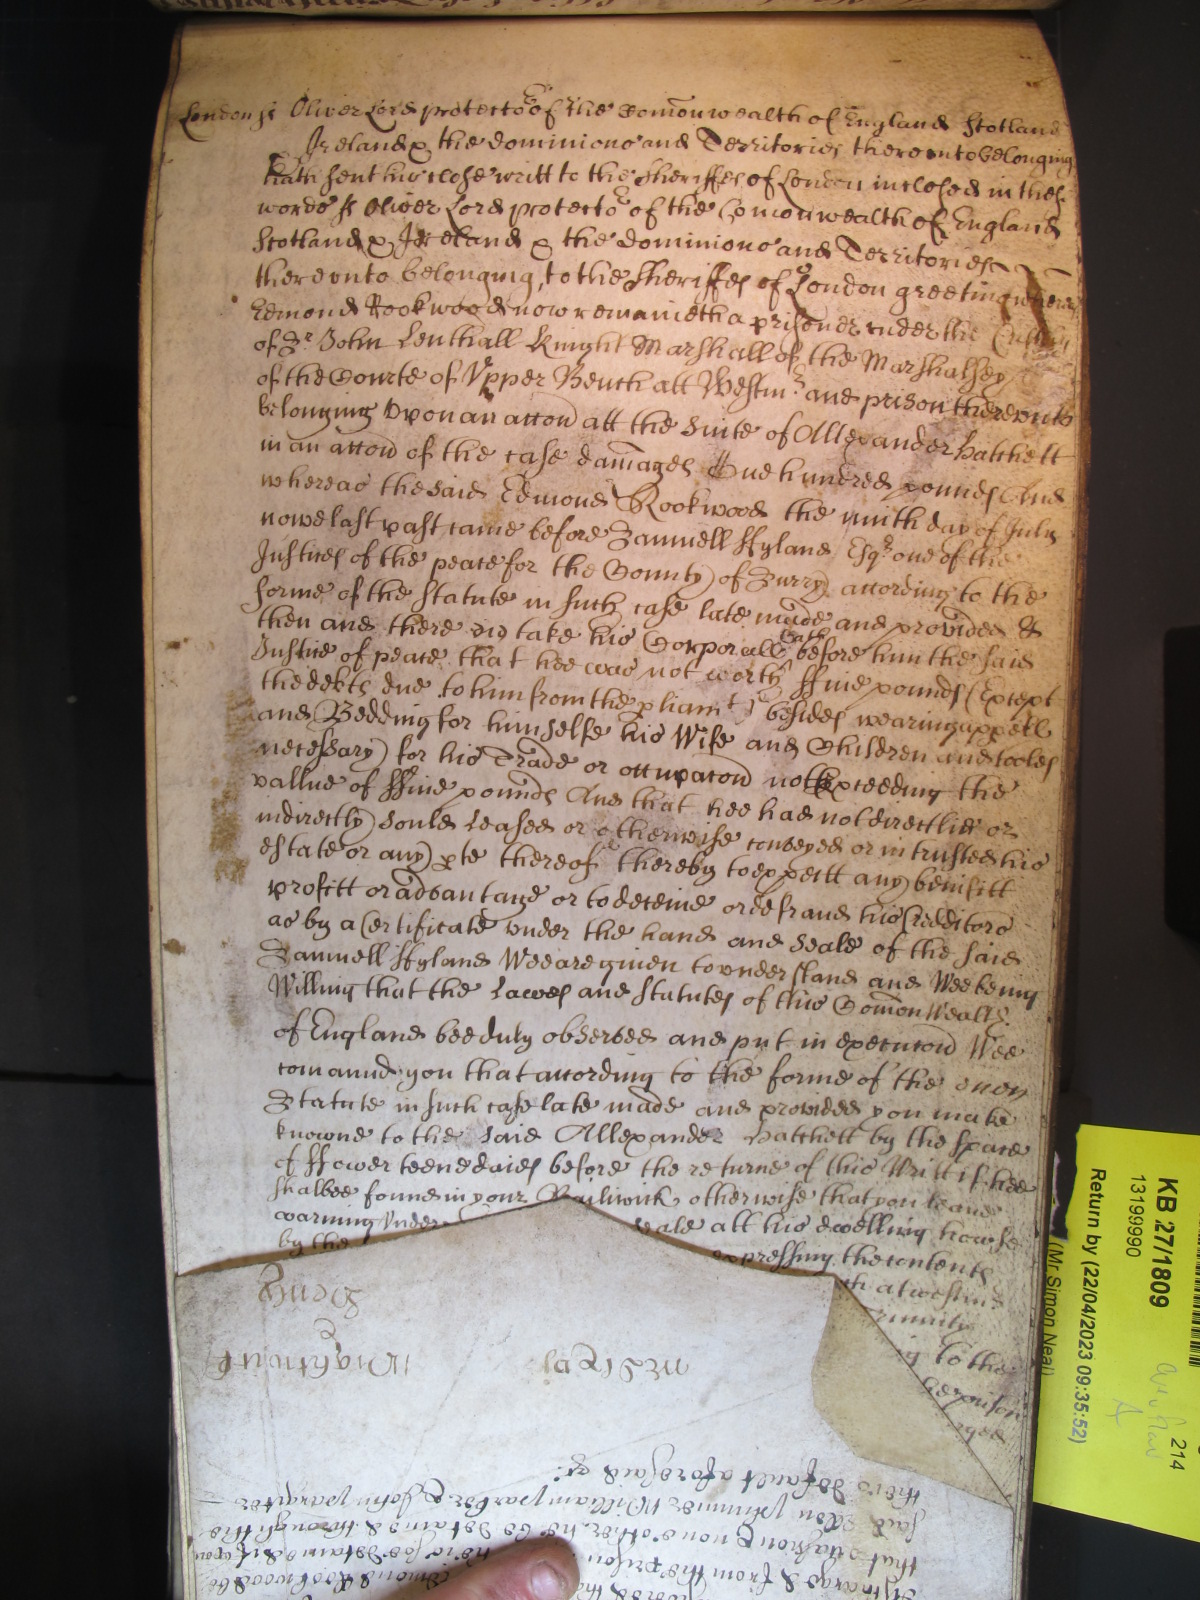 London ss Oliver Lord protector of the Comonwealth of England Scotland
Ireland & the dominions and Territories thereunto belonging
hath sent his close writt to the Sheriffes of London inclosed in thes
words ss Oliver Lord protector of the Comonwealth of England
Scotland & Ireland & the dominions and Territories
thereunto belonging, to the Sheriffes of London greeting whereas
Edmond Rookwood now remaineth a prisoner under the Custody
of Sr John Lenthall Knight Marshall of the Marshalsey
of the Courte of Upper Bench att Westmr and prison thereunto
belonging Upon an accon att the suite of Allexander Hatchett
in an accon of the case damages One hundred pounds And
whereas the said Edmond Rookwood the ninth day of July
nowe last past came before Samuell Hyland Esqr one of the
Justices of the peace for the County of Surry according to the
forme of the Statute in such case late made and provided &
then and there did take his Corporall Oath before him the said
Justice of peace that hee was not worth ffive pounds (Except
the debts due to him from the p liamt) besides wearing appell
and Bedding for himselfe his Wife and Children and tooles
necessary for his Trade or occupacon not Exceeding the
vallue of ffive pounds And that hee had not directlie or
indirectly sould Leased or otherwise conveyed or intrusted his
estate or any pte thereof thereby to expectt any benifitt
profitt or advantage or to deceive or defraud his Creditors
as by a Certificate under the hand and seale of the said
Samuell Hyland Wee are given to understand and Wee being
Willing that the Lawes and statutes of this Comon Wealth
of England bee duly observed and put in execucon Wee
comannd you that according to the forme of the
Statute in such case late made and provided you make
knowne to the said Allexander Hatchett by the space
of ffowerteene daies before the returne of this Writt if hee
shalbee found in your Bailiwick otherwise that you leave
warning Under seale att his dwelling howse
by the expressing the contents
th at westmr
Trinity
g to the
prison
Henry
Wightwick
there default aforesaid &
said Plummer William parker & John pargiter
that & none other he be detained through the
discharged from the prison he is soe detained
Edmond Rookwood be
KB 27/1809
13199990
214
Return by (22/04/2023 09:35:52)
(Mr Simon Neal)